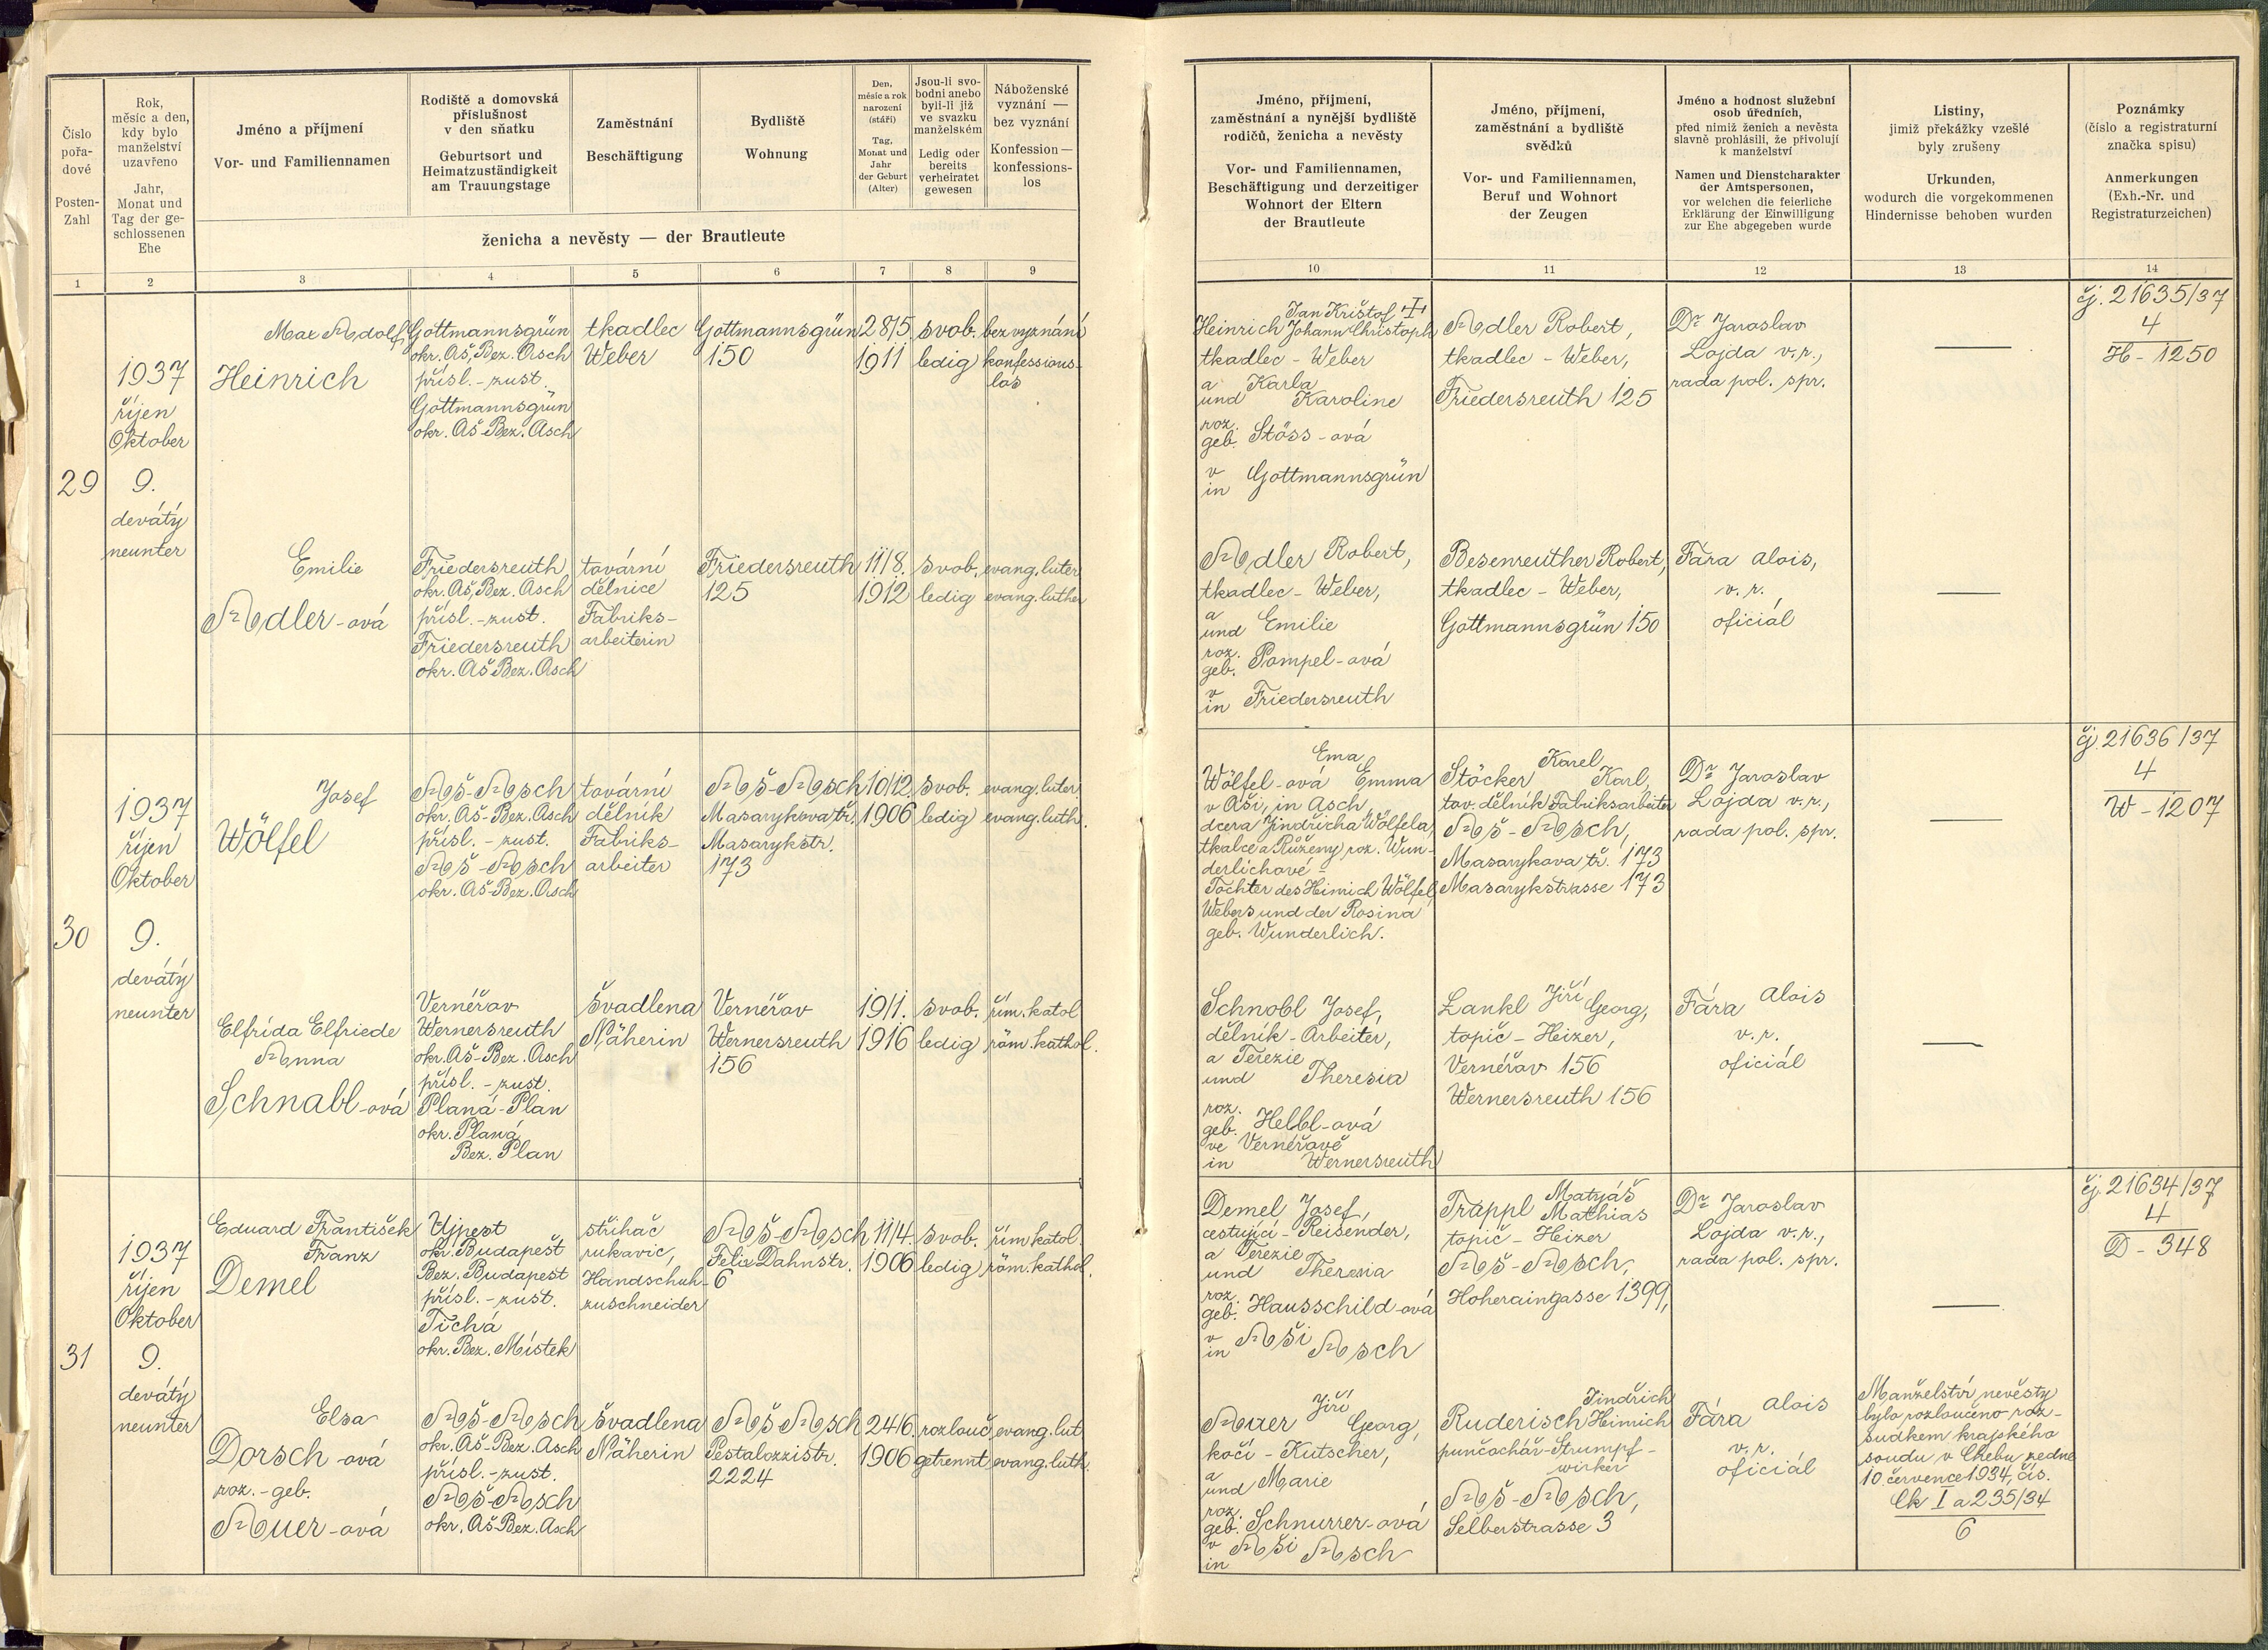 Číslo
pořa-
dové
Posten-
Zahl
Rok,
měsíc a den,
kdy bylo
manželství
uzavřeno
Jahr,
Monat und
Tag der ge-
schlossenen
Ehe
Jméno a příjmení
Vor- und Familiennamen
Rodiště a domovská
příslušnost
v den sňatku
Geburtsort und
Heimatzuständigkeit
am Trauungstage
Zaměstnání
Beschäftigung
Bydliště
Wohnung
Den,
měsíc a rok
narození
(stáří)
Tag,
Monat und
Jahr
der Geburt
(Alter)
Jsou-li svo-
bodni anebo
byli-li již
ve svazku
manželském
Ledig oder
bereits
verheiratet
gewesen
Náboženské
vyznání —
bez vyznání
Konfession —
konfessions-
los
ženicha a nevěsty — der Brautleute
1
2
3
4
5
6
7
8
9
29
1937
říjen
Oktober
9.
devátý
neunter
Max Adolf
Heinrich
Gottmannsgrün
okr. Aš, Bez. Asch
přísl. - zust.
Gottmannsgrün
okr. Aš-Bez. Asch
tkadlec
Weber
Gottmannsgrün
150
28/5.
1911
svob.
ledig
bez vyznání
konfessions-
los
Emilie
Adler-ová
Friedersreuth
okr. Aš, Bez. Asch
přísl. - zust.
Friedersreuth
okr. Aš-Bez. Asch
tovární
dělnice
Fabriks-
arbeiterin
Friedersreuth
125
11/8.
1912
svob.
ledig
evang. luter
evang. luther
30
1937
říjen
Oktober
9.
devátý
neunter
Josef
Wölfel
Aš-Asch
okr. Aš-Bez. Asch
přísl. - zust.
Aš-Asch
okr. Aš-Bez. Asch
tovární
dělník
Fabriks-
arbeiter
Aš-Asch
Masarykova tř.
Masarykstr.
173
10/12.
1906
svob.
ledig
evang. luter
evang. luth.
Elfrída Elfriede
Anna
Schnabl-ová
Vernéřov
Wernersreuth
okr. Aš-Bez. Asch
přísl. - zust.
Planá-Plan
okr. Planá
Bez. Plan
švadlena
Näherin
Vernéřov
Wernersreuth
156
19/1.
1916
svob.
ledig
řím. katol
röm. kathol.
31
1937
říjen
Oktober
9.
devátý
neunter
Eduard František
Franz
Demel
Ujpest
okr. Budapešt
Bez. Budapest
přísl. - zust.
Tichá
okr. Bez. Místek
střihač
rukavic,
Handschuh-
zuschneider
Aš-Asch
Felix Dahnstr.
6
11/4.
1906
svob.
ledig
řím katol.
röm. kathol.
Elsa
Dorsch-ová
roz. - geb.
Auer-ová
Aš-Asch
okr. Aš-Bez. Asch
přísl. - zust.
Aš-Asch
okr. Aš-Bez. Asch
švadlena
Näherin
Aš Asch
Pestalozzistr.
2224
24/6.
1906
rozlouč.
getrennt
evang. lut
evang. luth.
Jméno, příjmení,
zaměstnání a nynější bydliště
rodičů, ženicha a nevěsty
Vor- und Familiennamen,
Beschäftigung und derzeitiger
Wohnort der Eltern
der Brautleute
Jméno, příjmení,
zaměstnání a bydliště
svědků
Vor- und Familiennamen,
Beruf und Wohnort
der Zeugen
Jméno a hodnost služební
osob úředních,
před nimiž ženich a nevěsta
slavně prohlásili, že přivolují
k manželství
Namen und Dienstcharakter
der Amtspersonen,
vor welchen die feierliche
Erklärung der Einwilligung
zur Ehe abgegeben wurde
Listiny,
jimiž překážky vzešlé
byly zrušeny
Urkunden,
wodurch die vorgekommenen
Hindernisse behoben wurden
Poznámky
(číslo a registraturní
značka spisu)
Anmerkungen
(Exh.-Nr. und
Registraturzeichen)
10
11
12
13
14
Jan Krištof
Heinrich Johann Christoph
tkadlec - Weber
a Karla
und Karoline
roz.
geb. Stöss-ová
v
in Gottmannsgrün
Adler Robert,
tkadlec - Weber,
Friedersreuth 125
Dr Jaroslav
Lojda v.r.,
rada pol. spr.
čj. 21635/37
4
H-1250
Adler Robert,
tkadlec - Weber,
a
und Emilie
roz.
geb. Pompel-ová
v
in Friedersreuth
Besenreuther Robert,
tkadlec - Weber,
Gottmannsgrün 150
Fára Alois,
v. r.,
oficiál
Ema
Wölfel-ová Emma
v Aši, in Asch,
dcera Jindřicha Wölfela,
tkalce a Růženy roz. Wun-
derlichové -
Tochter des Heinrich Wölfel,
Webers und der Rosina
geb. Wunderlich.
Karel
Stöcker Karl,
tov. dělník Fabriksarbeiter
Aš-Asch,
Masarykova tř. 173
Masarykstrasse 173
Dr Jaroslav
Lojda v.r.,
rada pol. spr.
čj. 21636/37
4
W-1207
Schnobl Josef,
dělník - Arbeiter,
a Terezie
und Theresia
roz.
geb. Helbl-ová
ve Vernéřově
in Wernersreuth
Jiří
Lankl Georg,
topič - Heizer,
Vernéřov 156
Wernersreuth 156
Fára Alois
v.r.
oficiál
Demel Josef,
cestující - Reisender,
a Terezie
und Theresia
roz.
geb. Hausschild-ová
v Aši
in Asch
Matyáš
Trappl Mathias
topič - Heizer
Aš-Asch,
Hoheraingasse 1399,
Dr Jaroslav
Lojda v.r.,
rada pol. spr.
čj. 21634/37
4
D-348
Jiří
Auer Georg,
kočí - Kutscher,
a
und Marie
roz.
geb. Schnurrer-ová
v Aši
in Asch
Jindřich
Ruderisch Heinrich
punčochář-Strumpf-
wirker
Aš-Asch,
Selberstrasse 3
Fára Alois
v.r.
oficiál
Manželství nevěsty
bylo rozloučeno roz-
sudkem krajského
soudu v Chebu ze dne
10. července 1934, čís.
Ck I a 235/34
6